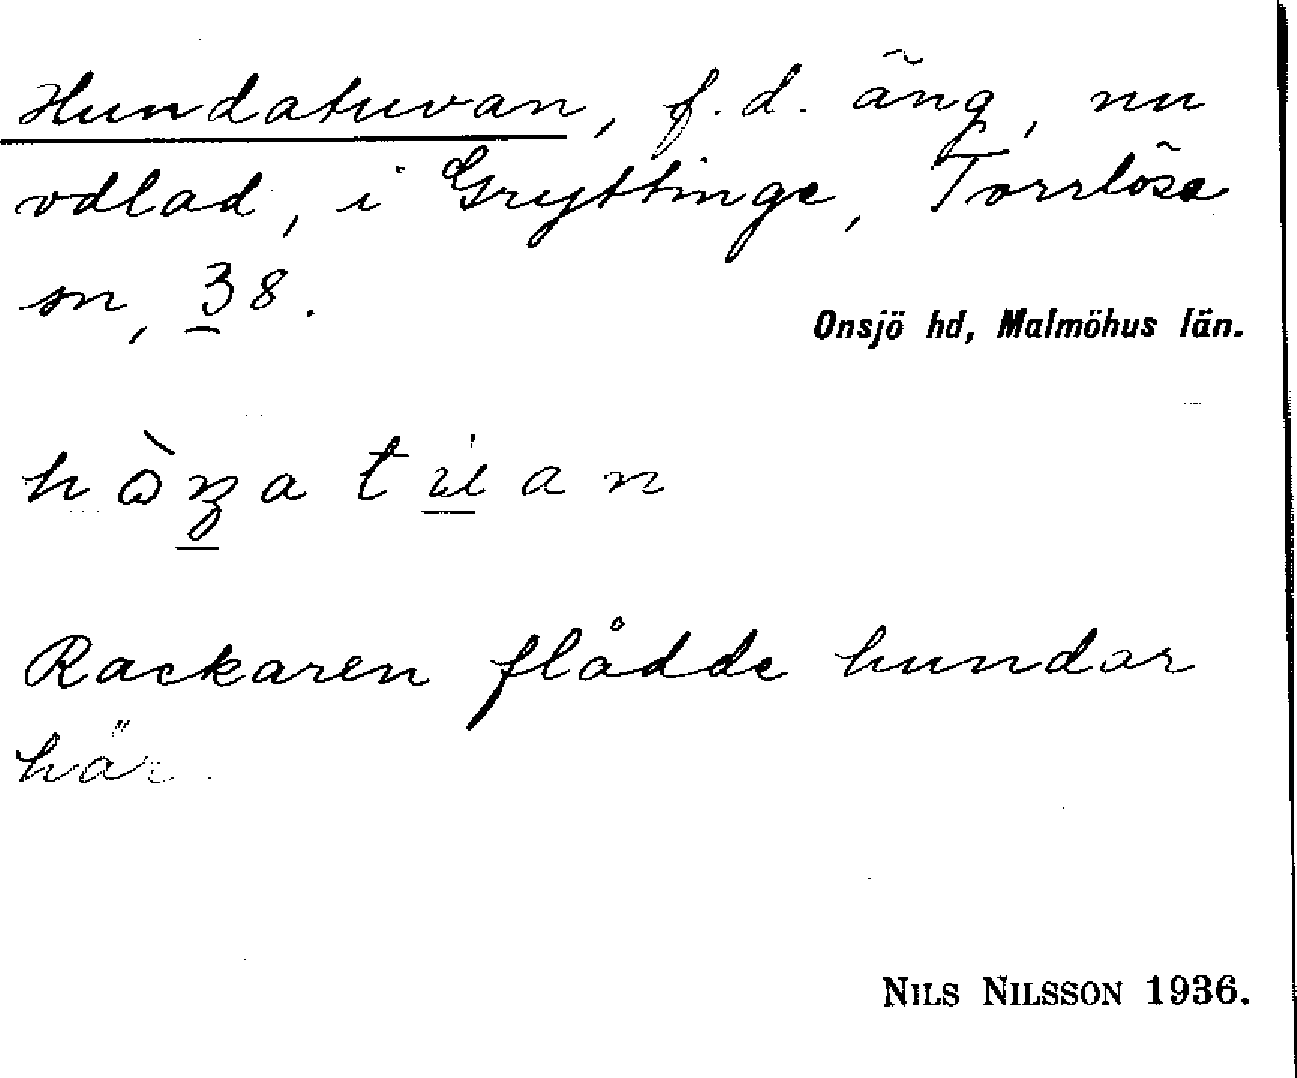 Hundatuvan, f.d. äng, nu
odlad, i Gryttinge, Torrlösa
sn, 38.
Onsjö hd, Malmöhus län.
Rackaren flådde hundar
här.
NILS NILSSON 1936.